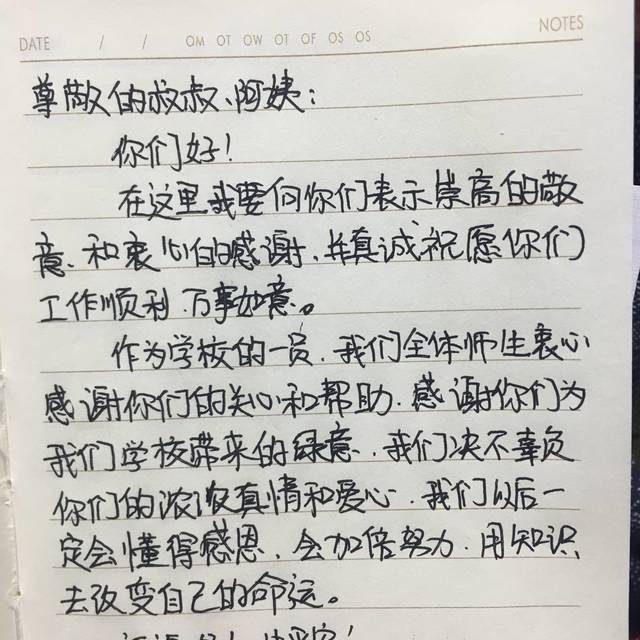 DATE / / OM OT OW OT OF OS OS NOTES
尊敬的叔叔、阿姨:
你们好!
在这里我要向你们表示崇高的敬
意、和衷心的感谢、并真诚祝愿你们
工作顺利.万事如意。
作为学校的一员.我们全体师生衷心
感谢你们的关心和帮助.感谢你们为
我们学校带来的绿意.我们决不辜负
你们的浓浓真情和爱心.我们以后一
定会懂得感恩.会加倍努力.用知识
去改变自己的命运。